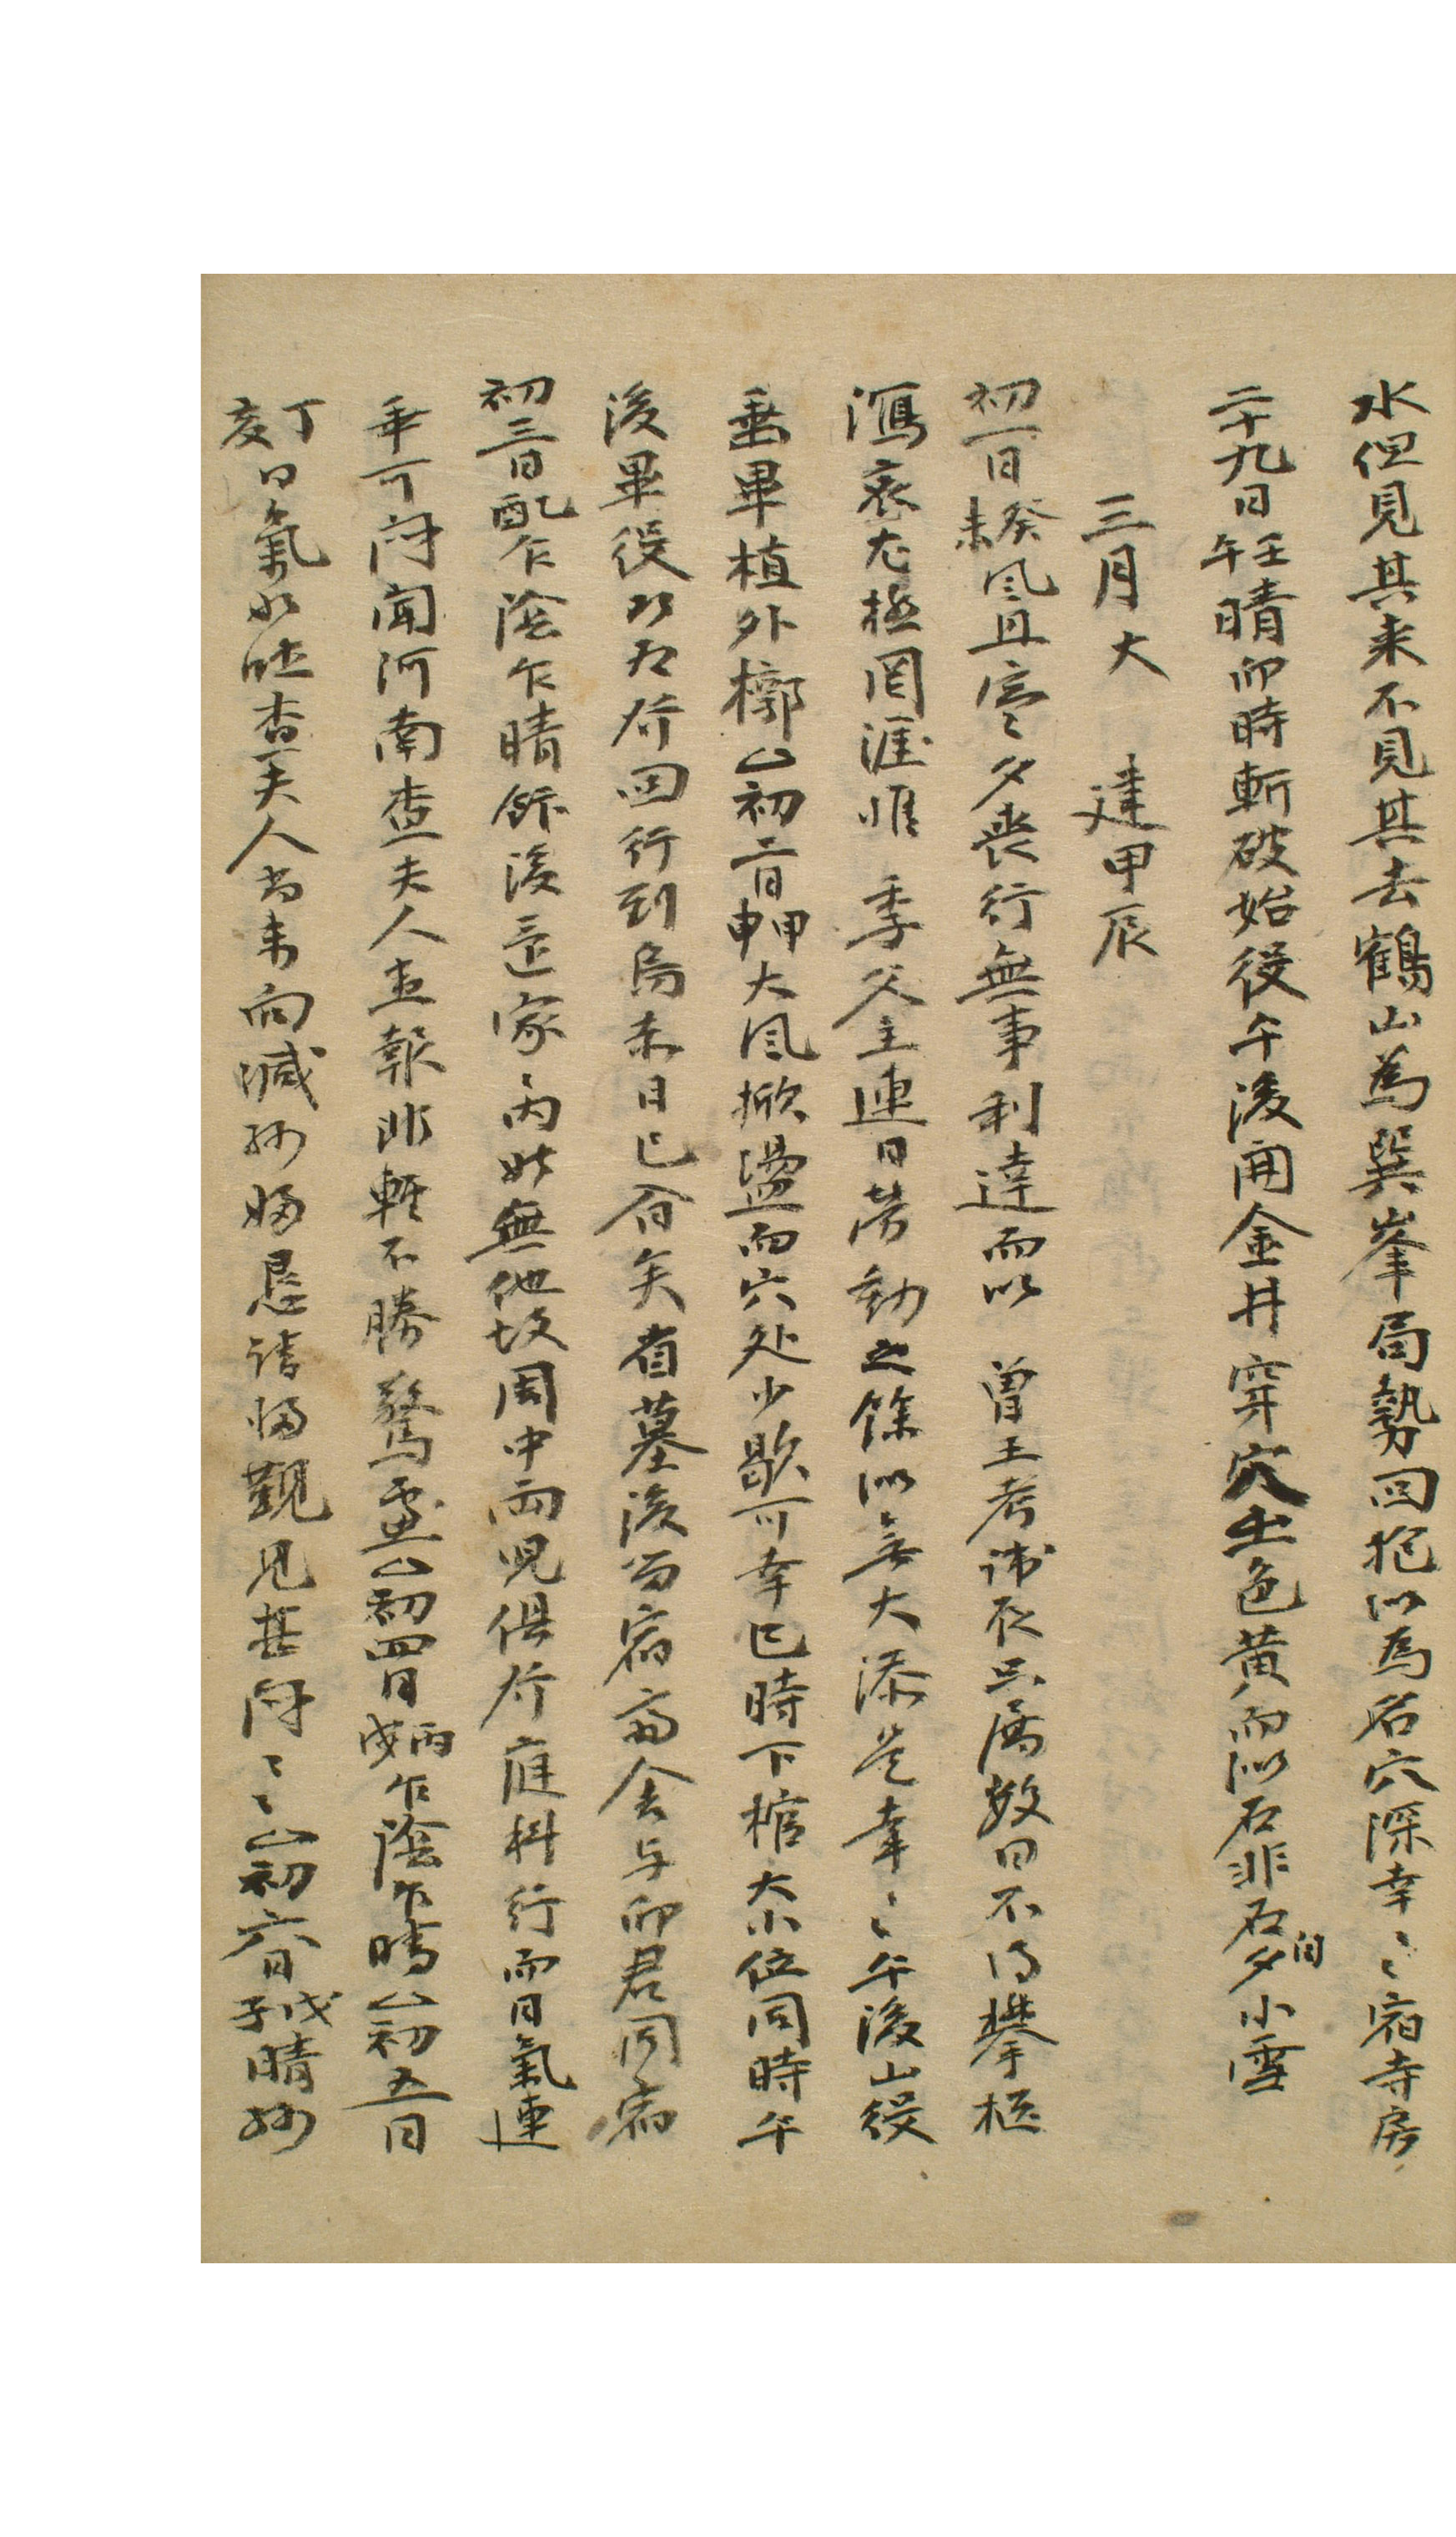 水但見其來不見其去鶴山爲巽峯局勢回抱以爲名穴深幸〻宿寺房
二十九日壬午晴卯時斬破始役午後開金井穿穴土色黃而似石非石夕間小雪
三月大 建甲辰
初一日癸未風且寒夕喪行無事利達而以 曾王考諱辰只隔數日不得攀柩
瀉哀尤極罔涯惟 季父主連日勞動之餘似無大添是幸〻午後山役
垂畢植外槨△初二日甲申大風掀盪而穴處少歇可幸巳時下棺大小位同時午
後畢役仍爲作回行到烏未日已昏矣省墓後留宿齋舍与卯君同宿
初三日乙酉乍陰乍晴飯後還家〻內姑無他故周中兩兒俱作庭科行而日氣連
乖可悶聞河南查夫人査報非輕不勝驚慮△初四日丙戌乍陰乍晴△初五日
丁亥日氣如昨查夫人尙未向減孫婦恳請歸覲見甚悶〻△初六日戊子晴孫